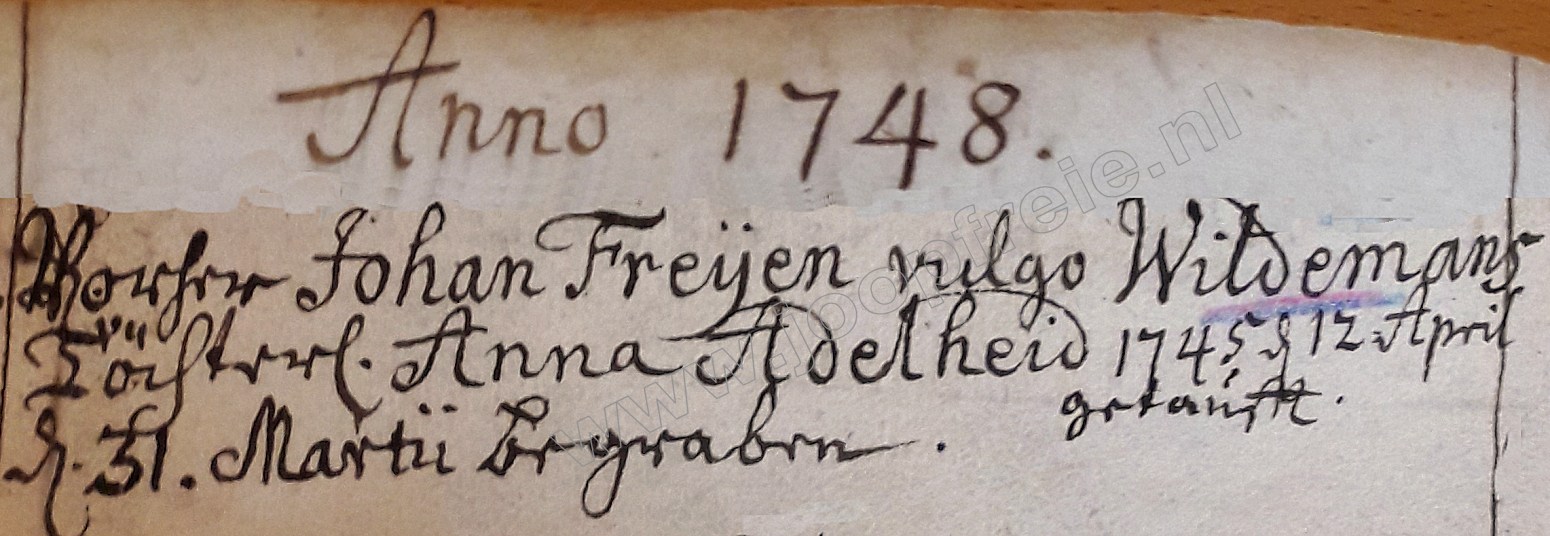 Anno 1748.
Johan Freijen vulgo Wildemans
Töchterl. Anna Adelheid 1745 d 12 April
getaufft.
d. 31. Martii begraben.
www.ipopfreie.nl